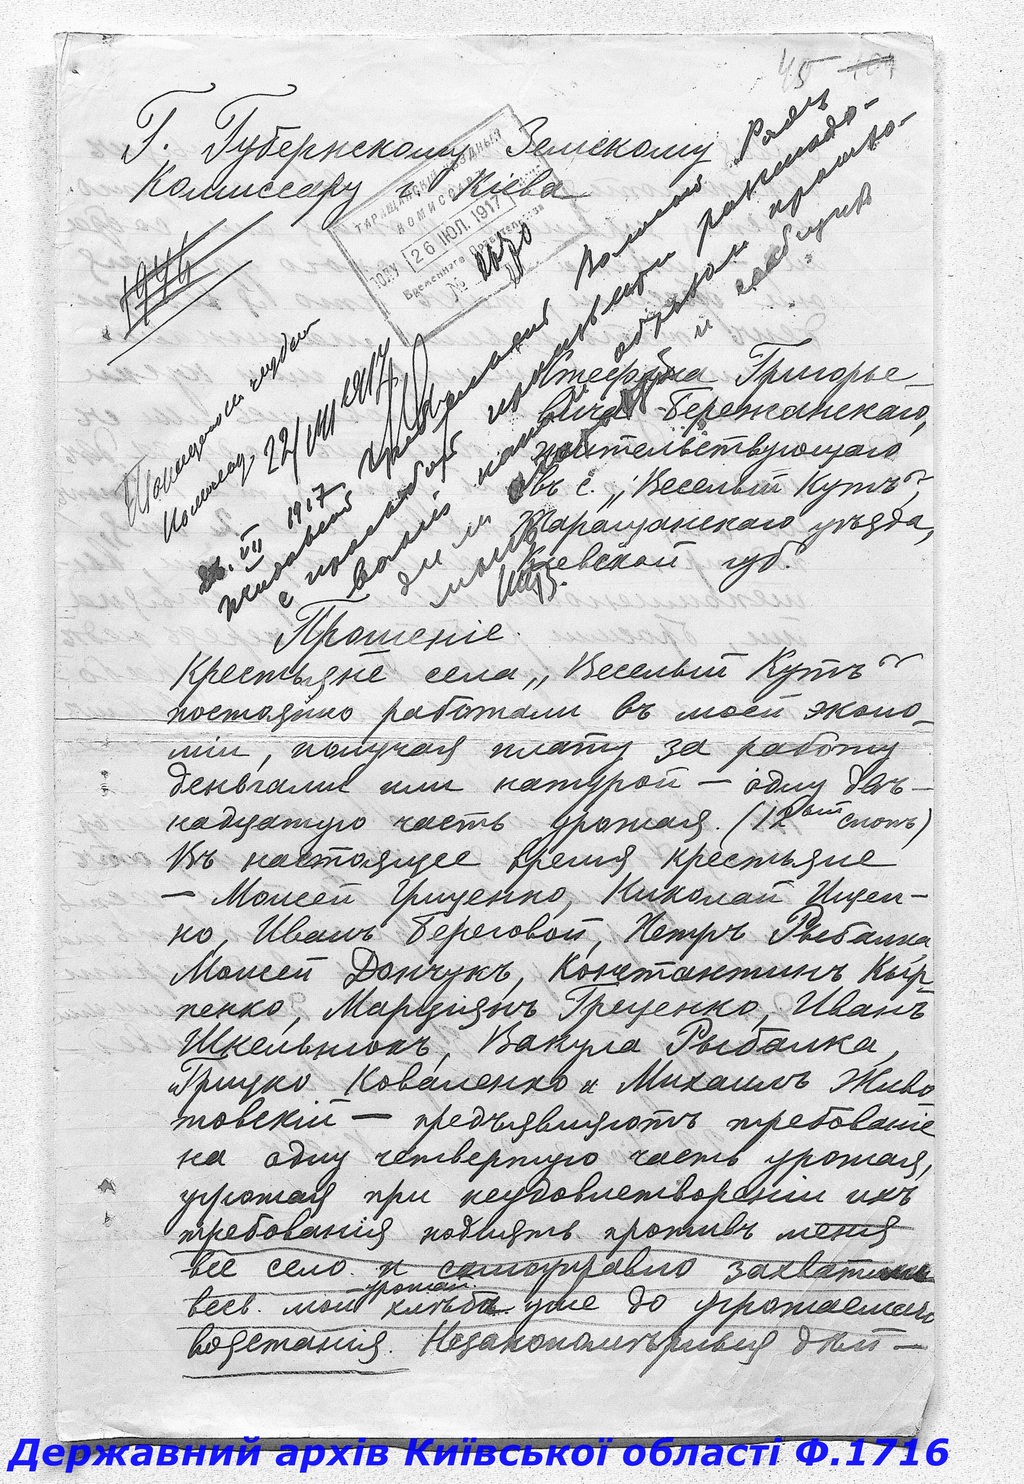 45 104
Г. Губернскому Земскому
Комиссару г. Кіева
ТАРАЩАНСКІЙ УѢЗДНЫЙ
КОМИССАРЪ
26 ІЮЛ. 1917
Временного Правительства
№
1974
22/VII 1917
26. VII 1917
Стефана Григорье-
вича Бережанскаго,
жительствующаго
въ с. „Веселый Кутъ",
Таращанскаго уѣзда,
Кіевской губ.
Прошеніе.
Крестьяне села „Веселый Кутъ"
постоянно работали въ моей эконо-
міи, получая плату за работу
деньгами или натурой — одну двѣ-
надцатую часть урожая. (12ый снопъ)
Въ настоящее время крестьяне
— Моисей Грищенко, Николай Ищен-
ко, Иванъ Береговой, Петръ Рыбалка
Моисей Дончукъ, Константинъ Кыр-
пенко, Марціянъ Грещенко, Иванъ
Шкельнюкъ, Вакула Рыбалка,
Грицко Коваленко и Михаилъ Живо
товскій — предъявляютъ требованіе
на одну четвертую часть урожая,
угрожая при неудовлетвореніи ихъ
требованія поднять противъ меня
все село и самоуправно захватить
весь мой урожай хлѣба уже до угрожаемаго
возстанія. Незакономѣрныя дѣй-
Державний архів Київської області Ф.1716